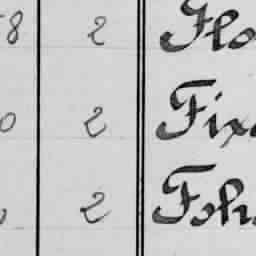 8 2 Flo
0 2 Fix
2 Foh